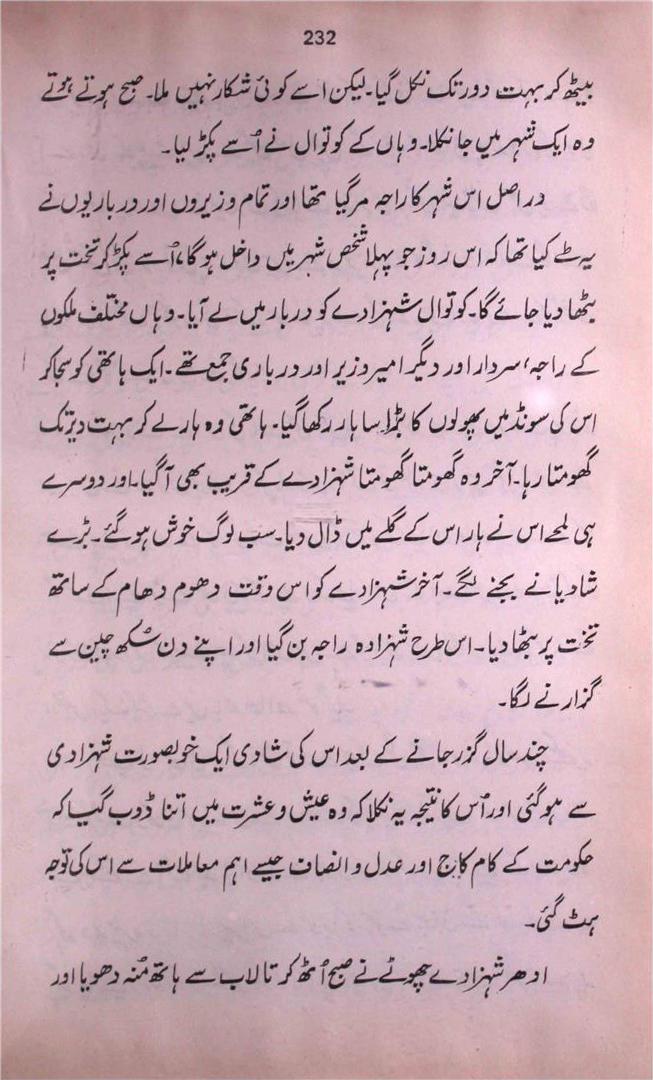 232
بیٹھ کر بہت دور تک نکل گیا۔ لیکن اسے کوئی شکار نہیں ملا۔ صبح ہوتے ہوتے
وہ ایک شہر میں جا نکلا۔ وہاں کے کوتوال نے اُسے پکڑ لیا۔
دراصل اس شہر کا راجہ مر گیا تھا اور تمام وزیروں اور درباریوں نے
یہ طے کیا تھا کہ اس روز جو پہلا شخص شہر میں داخل ہو گا، اُسے پکڑ کر تخت پر
بٹھا دیا جائے گا۔ کوتوال شہزادے کو دربار میں لے آیا۔ وہاں مختلف ملکوں
کے راجہ، سردار اور دیگر امیر وزیر اور درباری جمع تھے۔ ایک ہاتھی کو سجا کر
اس کی سونڈ میں پھولوں کا بڑا سا ہار رکھا گیا۔ ہاتھی وہ ہار لے کر بہت دیر تک
گھومتا رہا۔ آخر وہ گھومتا گھومتا شہزادے کے قریب بھی آ گیا۔ اور دوسرے
ہی لمحے اس نے ہار اس کے گلے میں ڈال دیا۔ سب لوگ خوش ہو گئے۔ بڑے
شادیانے بجنے لگے۔ آخر شہزادے کو اس وقت دھوم دھام کے ساتھ
تخت پر بٹھا دیا۔ اس طرح شہزادہ راجہ بن گیا اور اپنے دن سُکھ چین سے
گزارنے لگا۔
چند سال گزر جانے کے بعد اس کی شادی ایک خوبصورت شہزادی
سے ہو گئی اور اُس کا نتیجہ یہ نکلا کہ وہ عیش و عشرت میں اتنا ڈوب گیا کہ
حکومت کے کام کاج اور عدل و انصاف جیسے اہم معاملات سے اس کی توجہ
ہٹ گئی۔
ادھر شہزادے چھوٹے نے صبح اُٹھ کر تالاب سے ہاتھ مُنہ دھویا اور